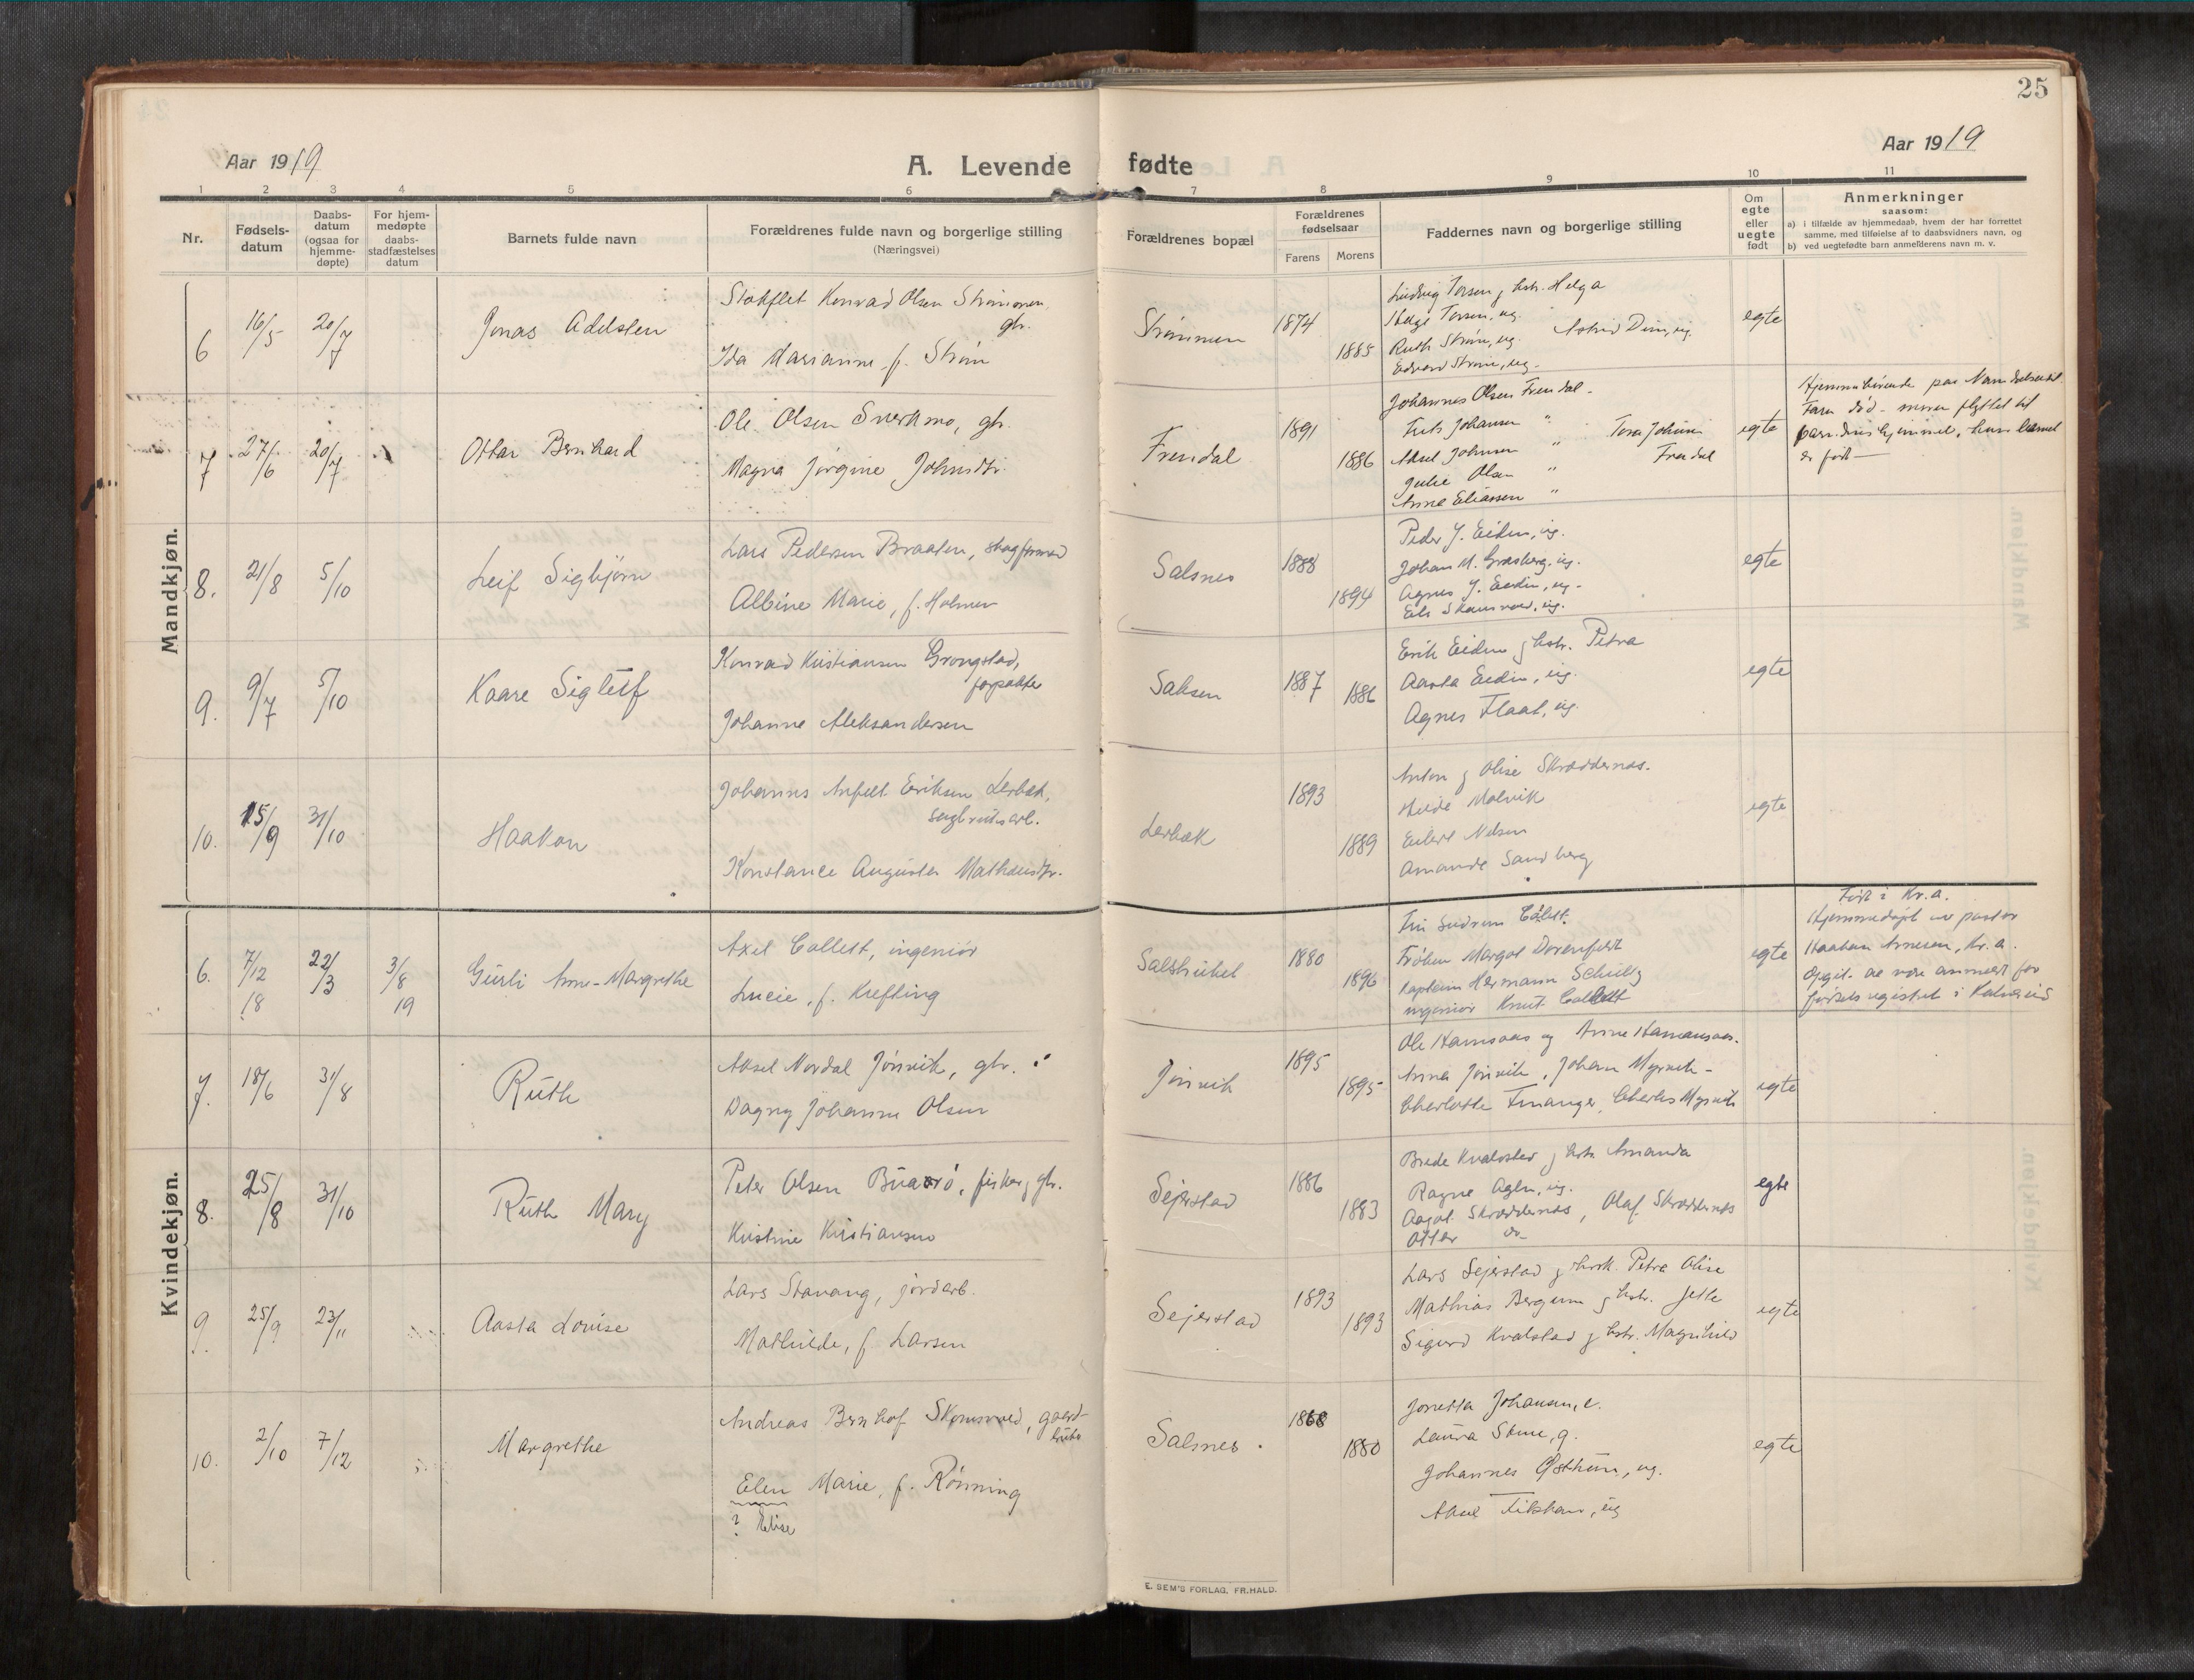 25
Aar 1919
A. Levende fødte
Aar 1919
1 2 3 4 5 6 7 8 9 10 11
Nr.
Fødsels-
datum
Daabs-
datum
(ogsaa for
hjemme-
døpte)
For hjem-
medøpte
daabs-
stadfæstelses
datum
Barnets fulde navn
Forældrenes fulde navn og borgerlige stilling
(Næringsvei)
Forældrenes bopæl
Forældrenes
fødselsaar
Farens Morens
Faddernes navn og borgerlige stilling
Om
egte
eller
uegte
født
Anmerkninger
saasom:
a) i tilfælde av hjemmedaab, hvem der har forrettet
samme, med tilføielse af to daabsvidners navn, og
b) ved uegtefødte barn anmelderens navn m. v.
Mandkjøn.
6 16/5 20/7 Jonas Adelsten
Konrad Olsen Strømmen
gbr.
Ida Marianne f. Strøm
Strømmen 1874 1885
Ludvig Torsen j hstr. Helga
Helge Torsen, ug.
Ruth Strøm, ug. Astrid
Edvard Strøm, ug.
egte
7 27/6 20/7 Ottar Bernhard
Ole Olsen Sverkmo, gbr.
Magna Jørgine Johnsdtr.
Frendal 1891 1886
Johannes Olsen Frendal
Johansen "
Aksel Johnsen " Tora Johnsen
Julie Olsen " Frendal
Anne Eliassen "
egte
Hjemmehørende paa
Faren død - moren flyttet til
hjemmet, hvor barnet
er født
8. 21/8 5/10 Leif Sigbjørn
Lars Pedersen Braaten,
Albine Marie, f. Holmen
Salsnes 1888 1894
Peder J. Eidem, ug.
Johan M. ug.
Agnes J. ug.
egte
9. 9/7 5/10 Kaare Sigleif
Konrad Kristiansen Grongstad,
forpakter
Johanne Aleksandersen
Salsen 1887 1886
Erik Eidem j hstr. Petra
Aasta Eidem, ug.
Agnes Flaat, ug.
egte
10. 15/9 31/10 Haakon
Johannes Eriksen Lerbæk,
sagbruksarb.
Konstance Augusta Mathæusdtr.
Lerbæk 1893 1889
Anton j Olise Skrøddernes.
Molvik
Eilert Nilsen
Amanda Sandberg
egte
Kvindekjøn.
6. 7/12 18 22/3 3/8 19 Gurli Anne-Margrethe
Axel Collett, ingeniør
Lucie, f. Krefting
Salsbruket 1880 1896
Collett.
Frøken Margot Dorenfeldt
kaptein Hermann Schultz
ingeniør Knut Collett
egte
Født i Kr.a.
Hjemmedøpt av pastor
Haakon Arnesen, Kr.a.
Opgit at være anmeldt for
fødselsregistret i Kolvereid
7. 18/6 31/8 Ruth
Aksel Nordal Jønvik, gbr.
Dagny Johanne Olsen
Jønvik 1895 1895
Ole Hansaas og Anne
Anna Jønvik, Johan Myrvik
Charlotte Finanger, Charles Myrvik
egte
8. 25/8 31/10 Ruth Mary
Peter Olsen Buarø, fisker j gbr.
Kristine Kristiansen
Sejerstad 1886 1883
Brede Kvalstad j hstr. Amanda
Ragna Aglen, ug.
Aagot Skrøddernes, Olaf Skrøddernes
Ottar do
egte
9. 25/9 23/11 Aasta Lovise
Lars Stavang, jordarb.
Mathilde, f Larsen
Sejerstad 1893 1893
Lars Sejerstad j hstr. Petra Olise
Mathias Bergum j hstr. Jette
Sigurd Kvalstad j hstr. Magnhild
egte
10. 2/10 7/12 Margrethe
Andreas Bernhof gaard-
bruker
Elen Marie, f. Rønning
? Elise
Salsnes. 1868 1880
Jonetta Johansen, e.
Laura g.
Johannes ug.
Fiskhau, ug
egte
E. SEM'S FORLAG, FR.HALD.